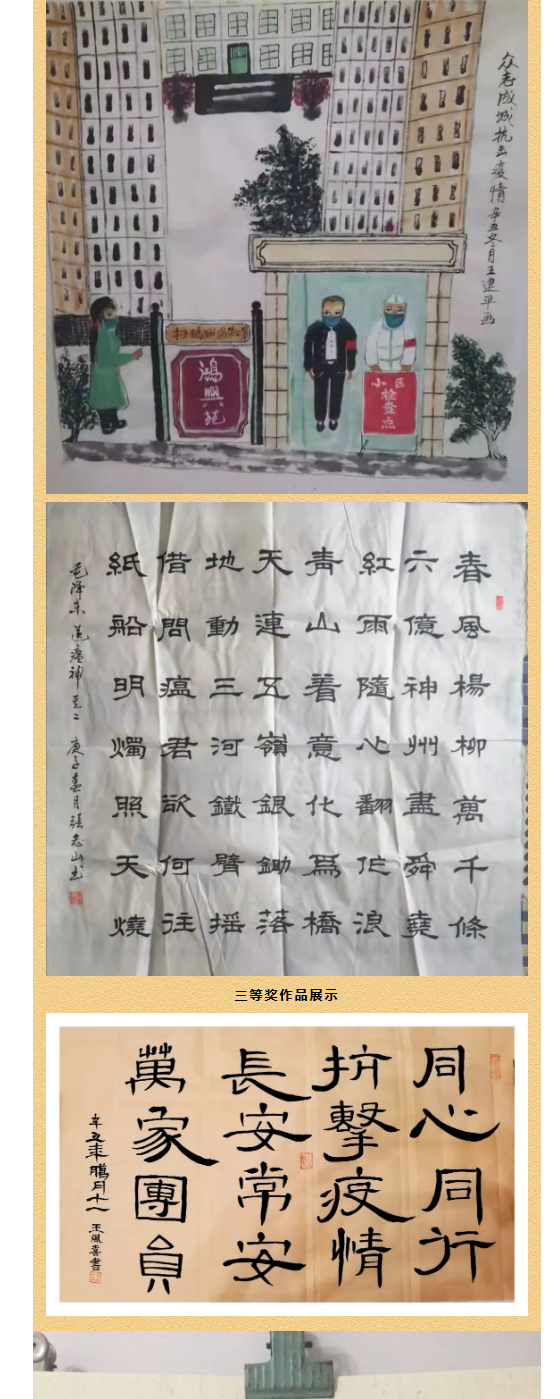 众志成城抗击疫情 辛丑冬月王建平画
鸿興苑
小区
检查点
春風楊柳萬千條
六億神州盡舜堯
紅雨隨心翻作浪
青山着意化爲橋
天連五嶺銀鋤落
地動三河鐵臂摇
借問瘟君欲何往
紙船明燭照天燒
毛泽东 送瘟神 其二 庚子春月張志山书
三等奖作品展示
同心同行
抗擊疫情
長安常安
萬家團員
辛丑年臘月十八 王風喜書